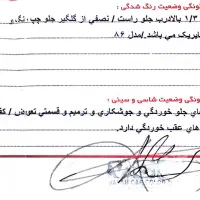 ونگی وضعیت رنگ شدگی :
۱/۳ بالادرب جلو راست / نصفی از گلگیر جلو چپ
پابریک می باشد /مدل ۸۶
ونگی وضعیت شاسی و سینی :
های جلو خوردگی و جوشکاری و ترمیم و قسمتی تعویض / کف
های عقب خوردگی دارد.